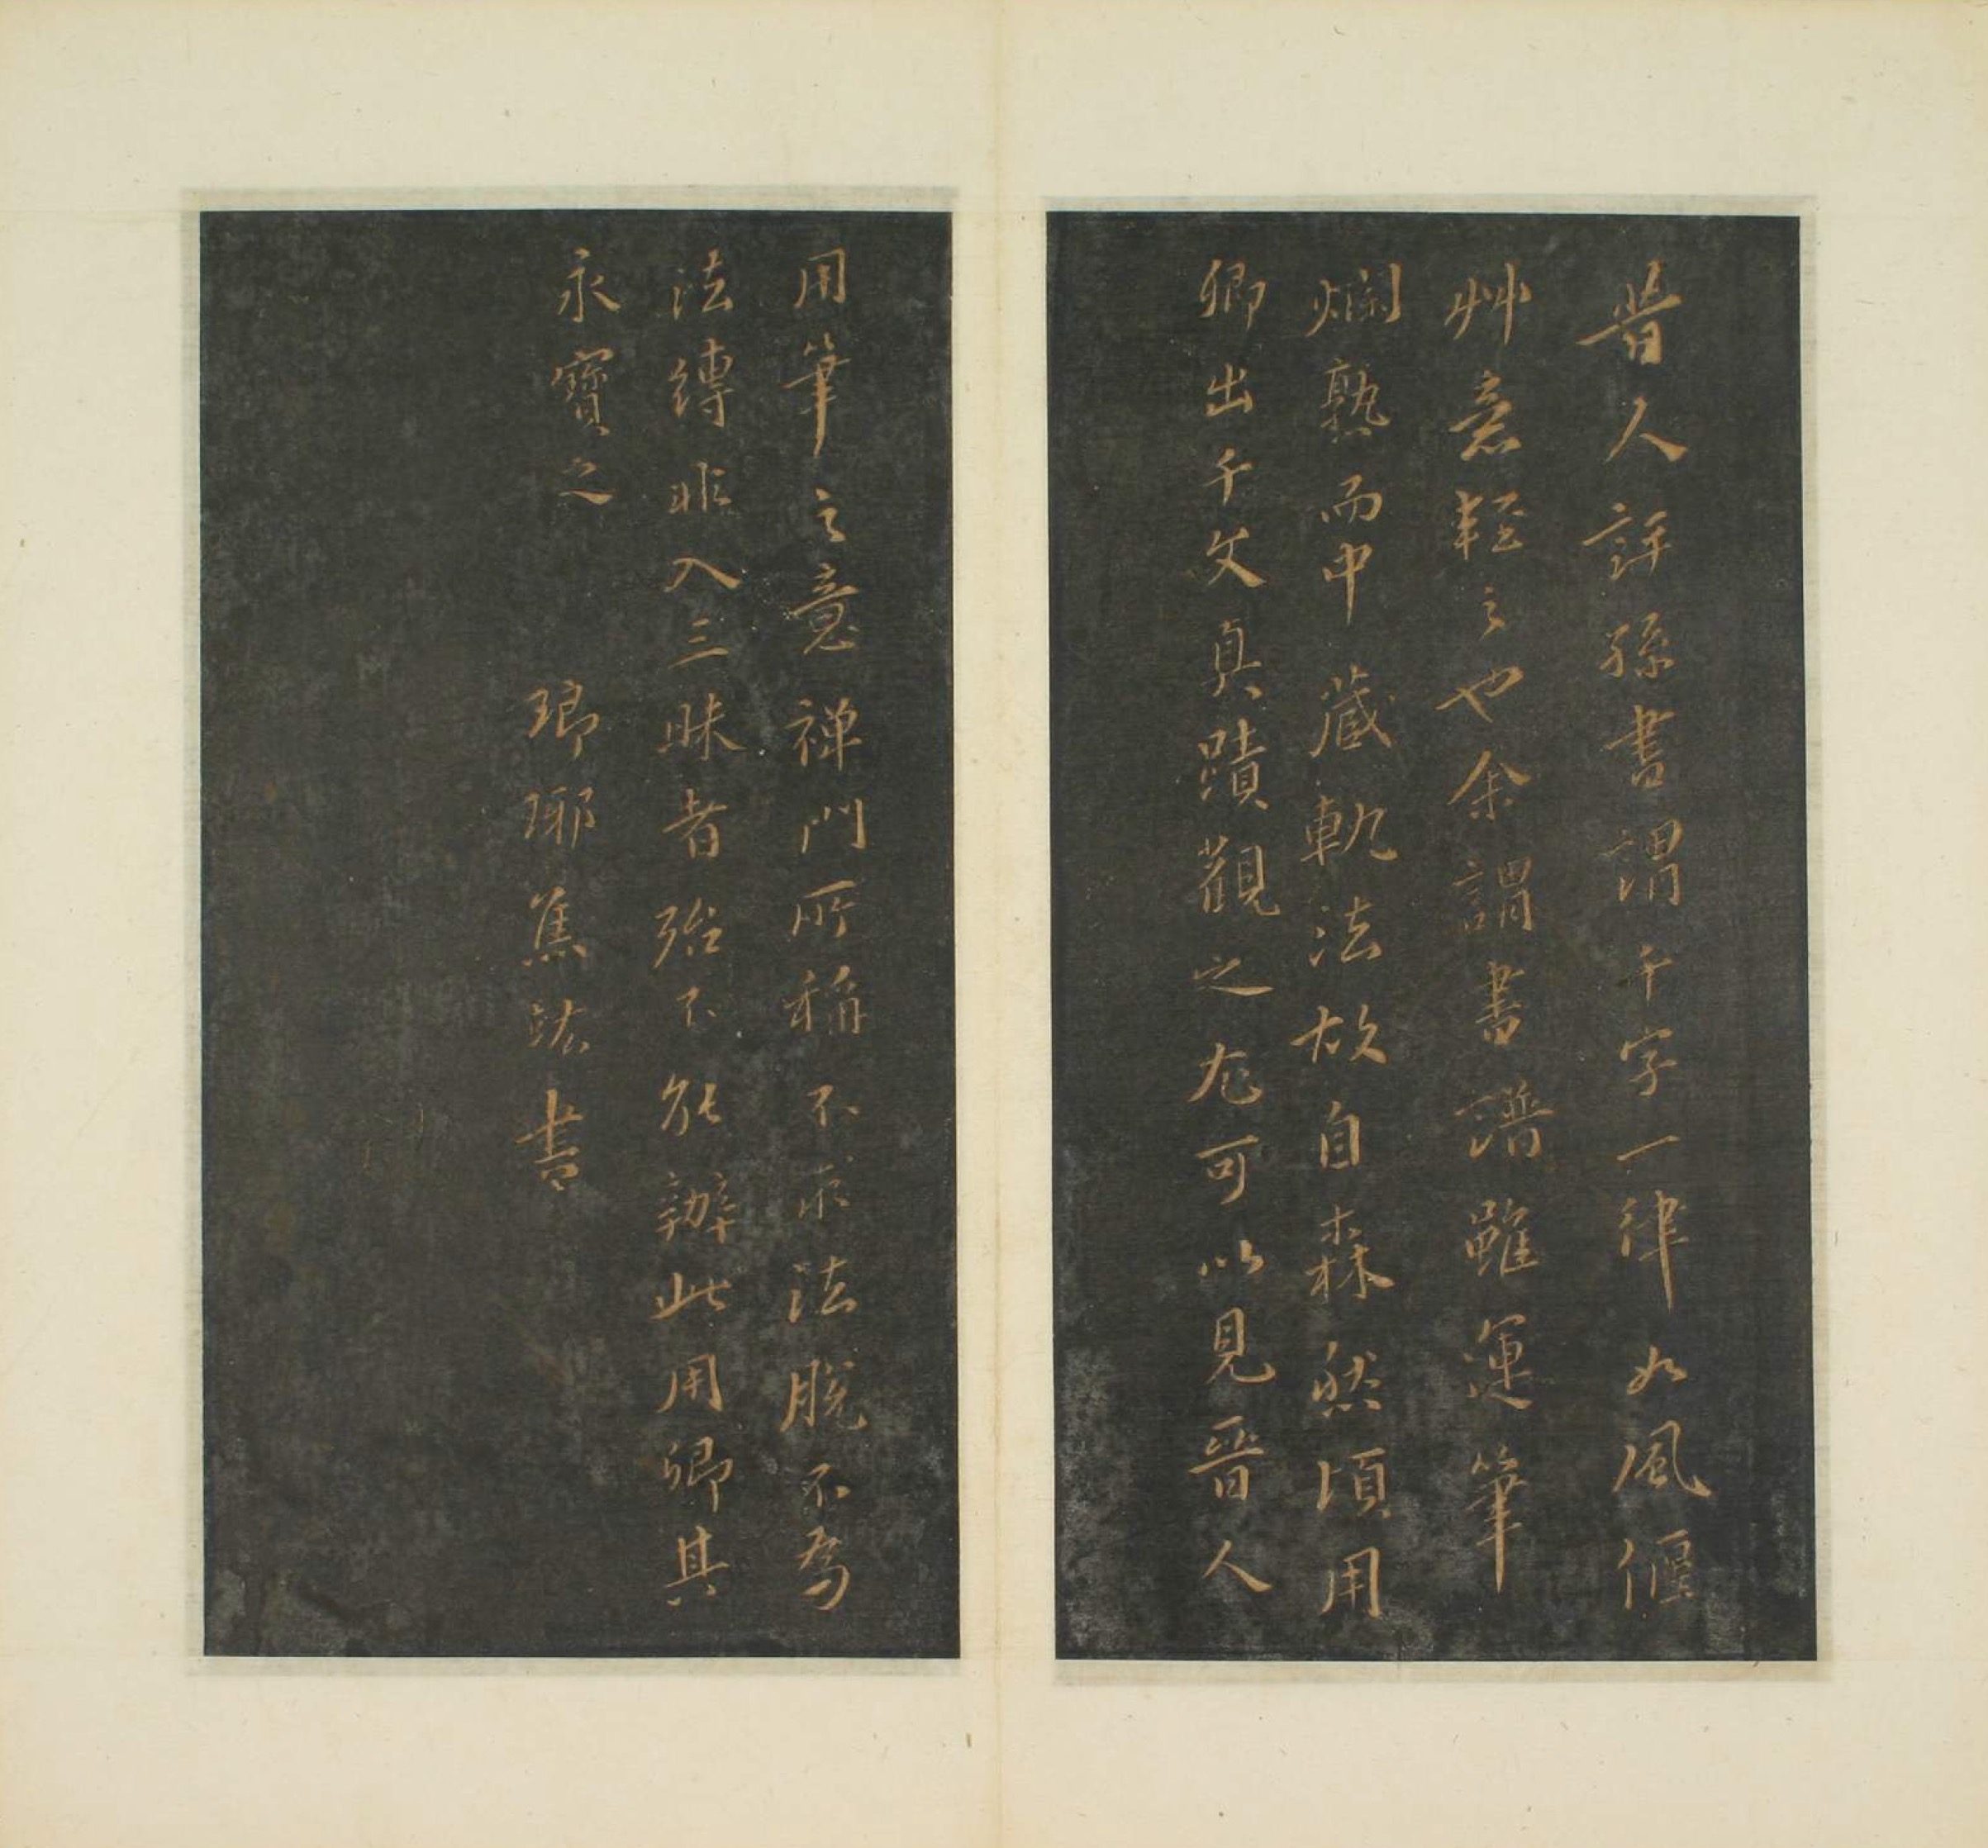 昔人評孫書謂千字一律如風偃
艸意輕之也余謂書譜雖運筆
爛熟而中藏軌法故自森然頃用
卿出千文真蹟觀之尤可以見晉人
用筆之意禅門所稱不求法脫不爲
法縛非入三昧者殆不能辦此用卿其
永寶之
琅琊焦竑書